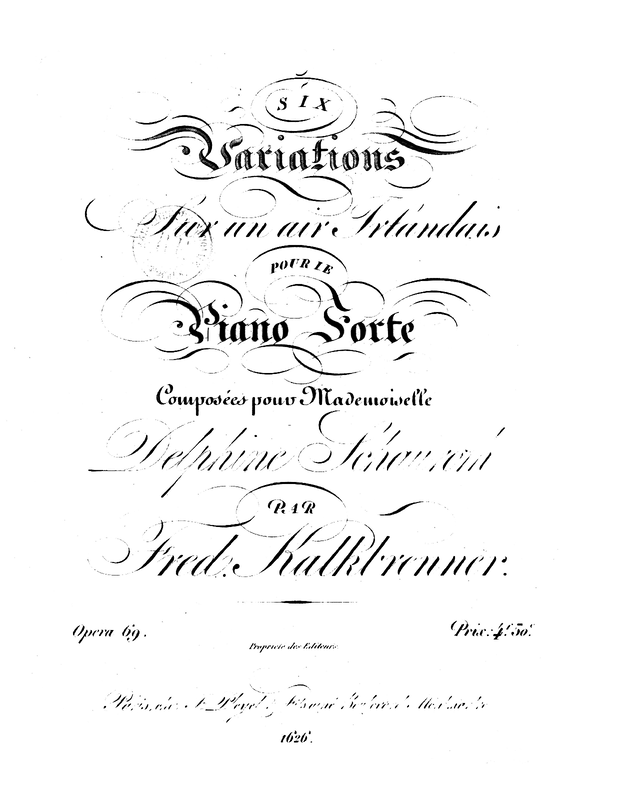 SIX
Variations
Sur un air Irlandais
POUR LE
Piano Forte
Composées pour Mademoiselle
Delphine Schauroth
PAR
Fred. Kalkbrenner.
Opera 69.
Prix: 4f. 50c.
Propriété des Editeurs.
Paris, chez I. Pleyel
1626.